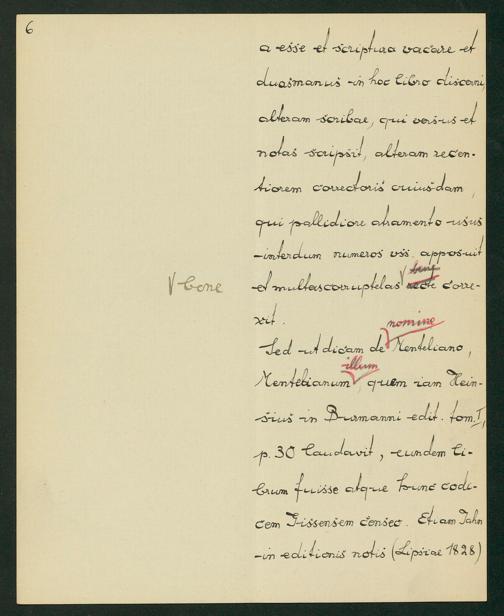 6
a esse et scriptura vacare et
duasmanus in hoc libro discerni,
alteram scribae, qui versus et
notas scripsit, alteram recen-
tiorem correctoris cuiusdam,
qui pallidiore atramento usus
interdum numeros vss. apposuit
bene
et multascorruptelas recte corre-
√ bene
xit.
nomine
Sed ut dicam de Menteliano,
illum
Mentelianum, quem iam Hein-
sius in Burmanni edit. tom. I,
p. 30 laudavit, eundem li-
brum fuisse atque hunc codi-
cem Gissensem censeo. Etiam Jahn
in editionis notis (Lipsiae 1828)